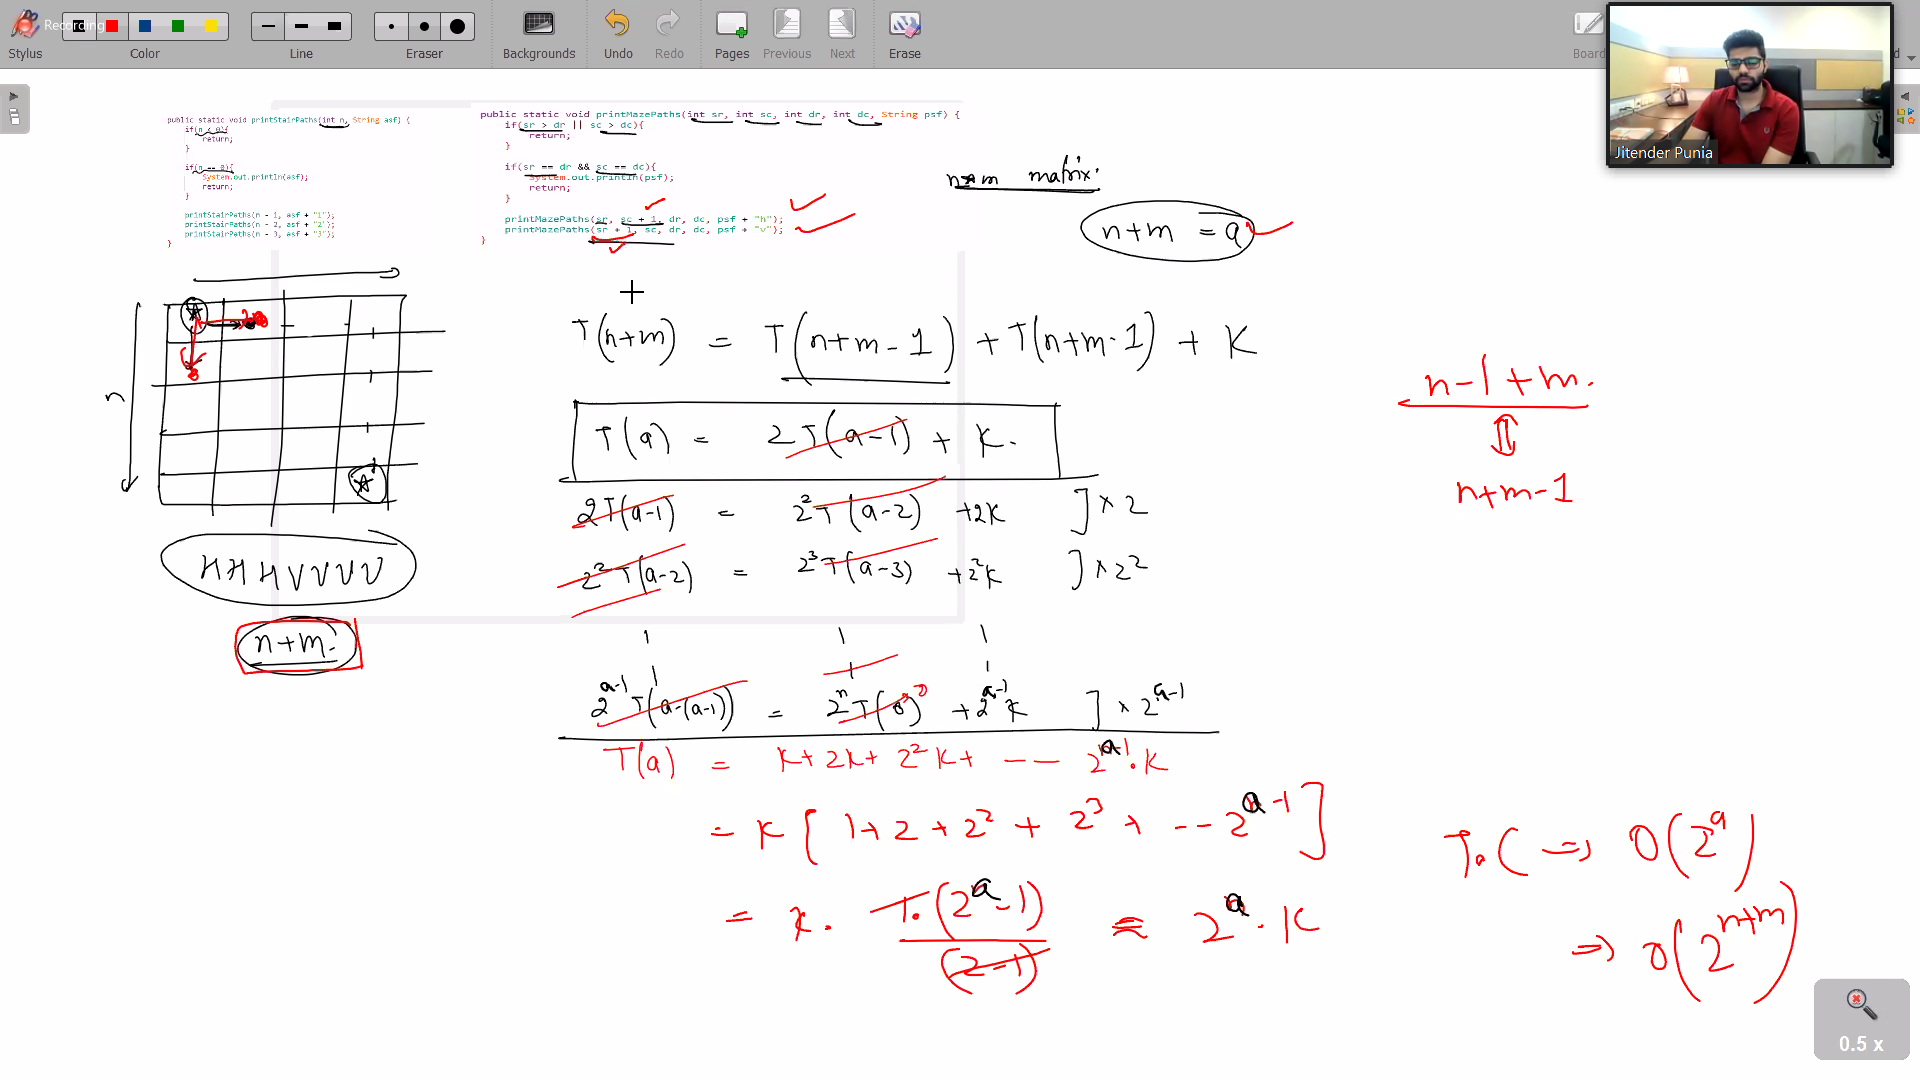 Recording
Stylus
Color
Line
Eraser
Backgrounds
Undo
Redo
Pages
Previous
Next
Erase
Jitender Punia
public static void printStairPaths(int n, String asf) {
if(n < 0){
return;
}
if(n == 0){
System.out.println(asf);
return;
}
printStairPaths(n - 1, asf + "1");
printStairPaths(n - 2, asf + "2");
printStairPaths(n - 3, asf + "3");
}
public static void printMazePaths(int sr, int sc, int dr, int dc, String psf) {
if(sr > dr || sc > dc){
return;
}
if(sr == dr && sc == dc){
System.out.println(psf);
return;
}
printMazePaths(sr, sc + 1, dr, dc, psf + "h");
printMazePaths(sr + 1, sc, dr, dc, psf + "v");
}
n*m matrix.
n+m = a
n
HHHVVVV
n+m.
T(n+m) = T(n+m-1) + T(n+m-1) + K
T(a) = 2T(a-1) + K.
2T(a-1) = 2²T(a-2) +2K ] × 2
2²T(a-2) = 2³T(a-3) +2²K ] × 2²
2^(a-1) T(a-(a-1)) = 2^n T(0) + 2^(a-1) K ] × 2^(a-1)
T(a) = K+2K+2²K+ -- 2^(a-1).K
= K[1+2+2²+2³+ --2^(a-1)]
= K. 1.(2^a-1)/(2-1) = 2^a.K
n-1+m.
n+m-1
T.C => O(2^a)
=> O(2^(n+m))
0.5 x